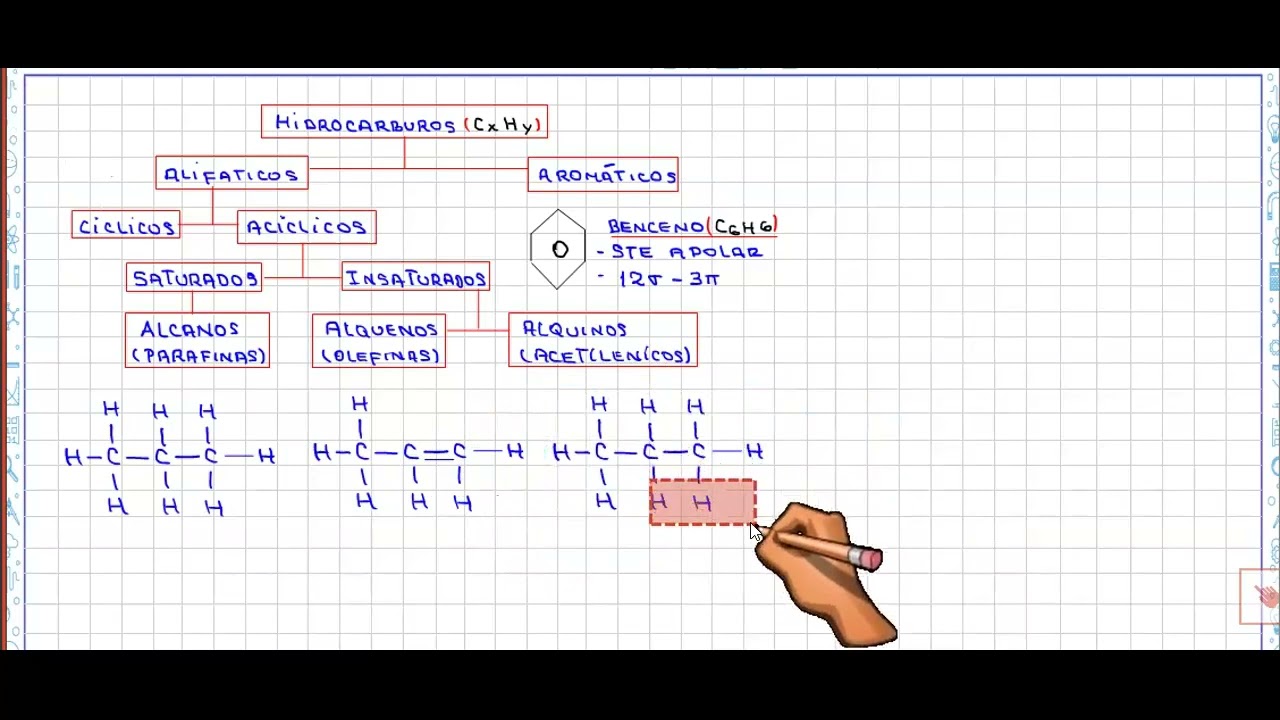 HIDROCARBUROS (CxHy)
ALIFATICOS
AROMÁTICOS
CICLICOS
ACICLICOS
BENCENO (C6H6)
- STE APOLAR
- 12σ - 3π
SATURADOS
INSATURADOS
ALCANOS
(PARAFINAS)
ALQUENOS
(OLEFINAS)
ALQUINOS
(ACETILENICOS)
H H H
H-C-C-C-H
H H H
H
H-C-C=C-H
H H H
H H H
H-C-C-C-H
H H H